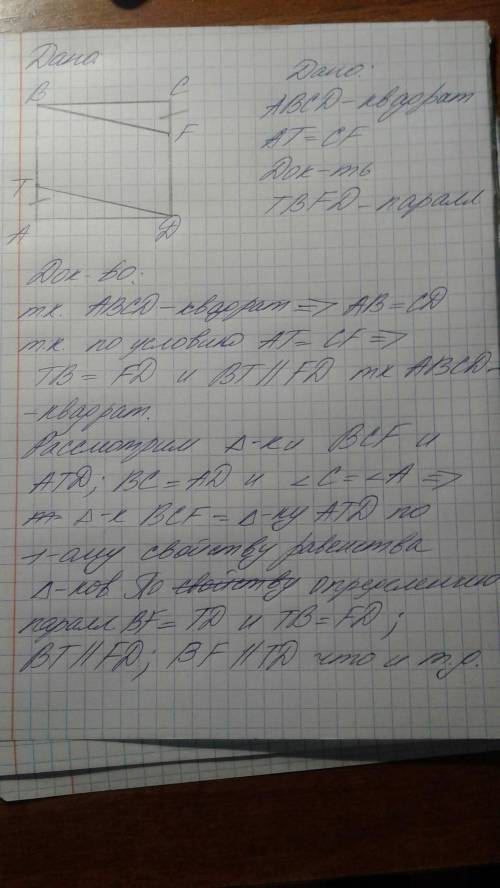 Дано
B C
F
T
A D
Дано:
ABCD – квадрат
AT = CF
Док-ть
TBFD – паралл
Док-во:
т.к. ABCD – квадрат => AB = CD
т.к. по условию AT = CF =>
TB = FD и BT || FD тк ABCD –
– квадрат.
Рассмотрим Δ-ки BCF и
ATD; BC = AD и ∠C = ∠A =>
Δ-к BCF = Δ-ку ATD по
1-ому свойству равенства
Δ-ков По свойству определению
паралл BF = TD и TB = FD;
BT || FD; BF || TD что и т.д.